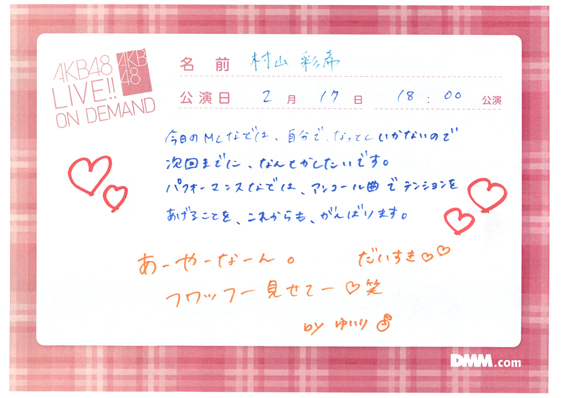 AKB48
LIVE!!
ON DEMAND
AKB
48
名前 村山 彩希
公演日 2月 17日 18:00 公演
今日のMCなどでは、自分で、なっとくいかないので
次回までに、なんとかしたいです。
パフォーマンスなどでは、アンコール曲でテンションを
あげることを、これからも、がんばります。
あーやーなーん。 だいすき♡♡
フワッフー見せてー♡笑
by ゆいり
DMM.com